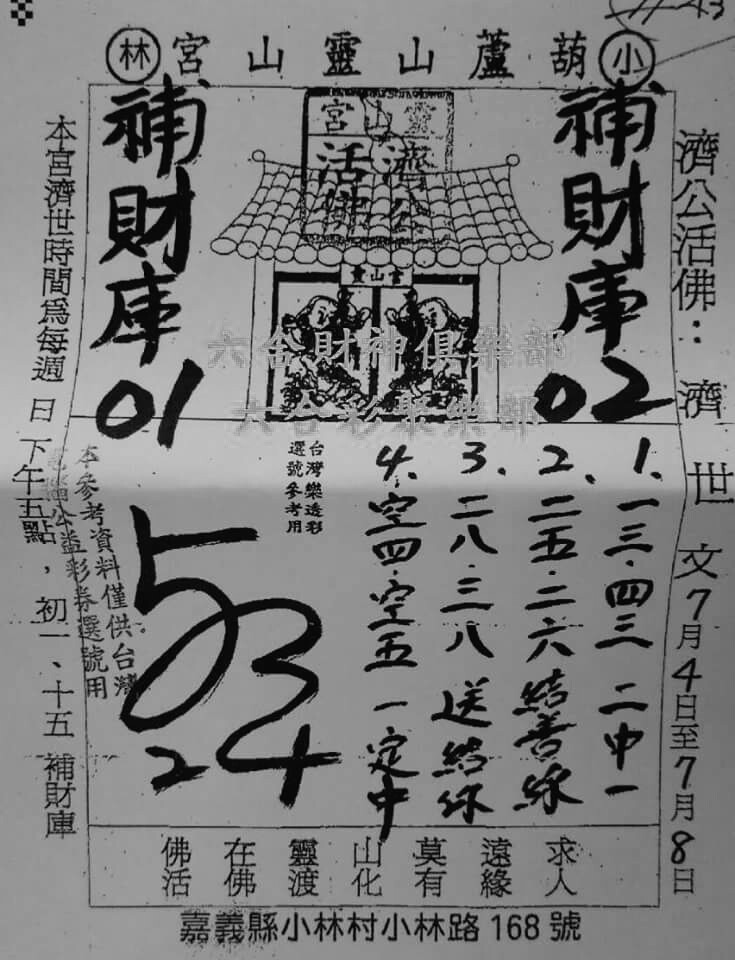 小 葫蘆山靈山宮 林
濟公活佛：濟世文7月4日至7月8日
補財庫
02
補財庫
01
靈山宮
濟公
活佛
靈山宮
六合財神俱樂部
六合彩聚樂部
1、一三．四三 二中一
2、二五．二六結善緣
3、二八．三八 送結緣
4、空四．空五 一定中
台灣樂透彩
選號參考用
5
03
24
本參考資料僅供台灣
電腦公益彩券選號用
本宮濟世時間為每週日下午五點，初一、十五 補財庫
求人
遠緣
莫有
山化
靈渡
在佛
佛活
嘉義縣小林村小林路168號